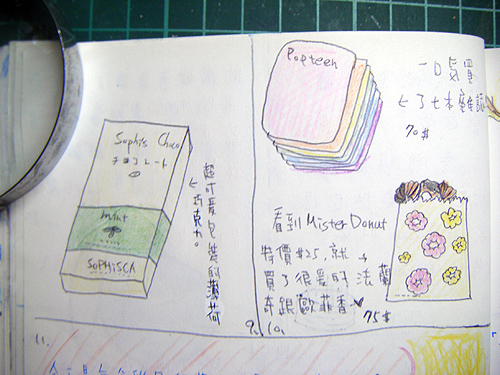 Sophis Choco
チョコレート
mint
SOPHISCA
超可愛包裝的薄荷
巧克力。
Popteen
一口氣買
了七本雜誌
70$
看到Mister Donut
特價$25,就
買了很愛的法蘭
奇跟歐菲香
75$
9. 10.
11.